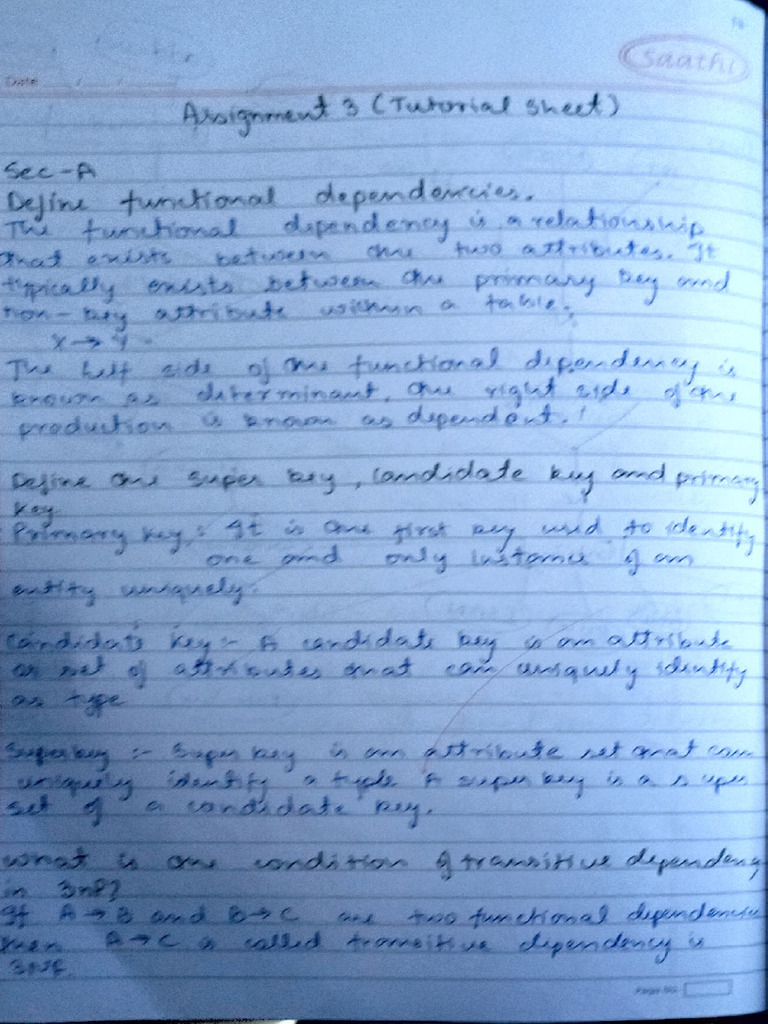 Saathi
Date
Assignment 3 (Tutorial Sheet)
Sec-A
Define functional dependencies.
The functional dependency is a relationship
that exists between the two attributes. It
typically exists between the primary key and
non-key attribute within a table.
X → Y
The left side of the functional dependency is
known as determinant, the right side of the
production is known as dependent.
Define the super key, candidate key and primary
key
Primary key :- It is the first key used to identify
one and only instance of an
entity uniquely.
Candidate key :- A candidate key is an attribute
or set of attributes that can uniquely identify
as type
Super key :- Super key is an attribute set that can
uniquely identify a tuple. A super key is a super
set of a candidate key.
What is the condition of transitive dependency
in 3NF?
If A → B and B → C are two functional dependencies
then A → C is called transitive dependency is
3NF.
Page No.